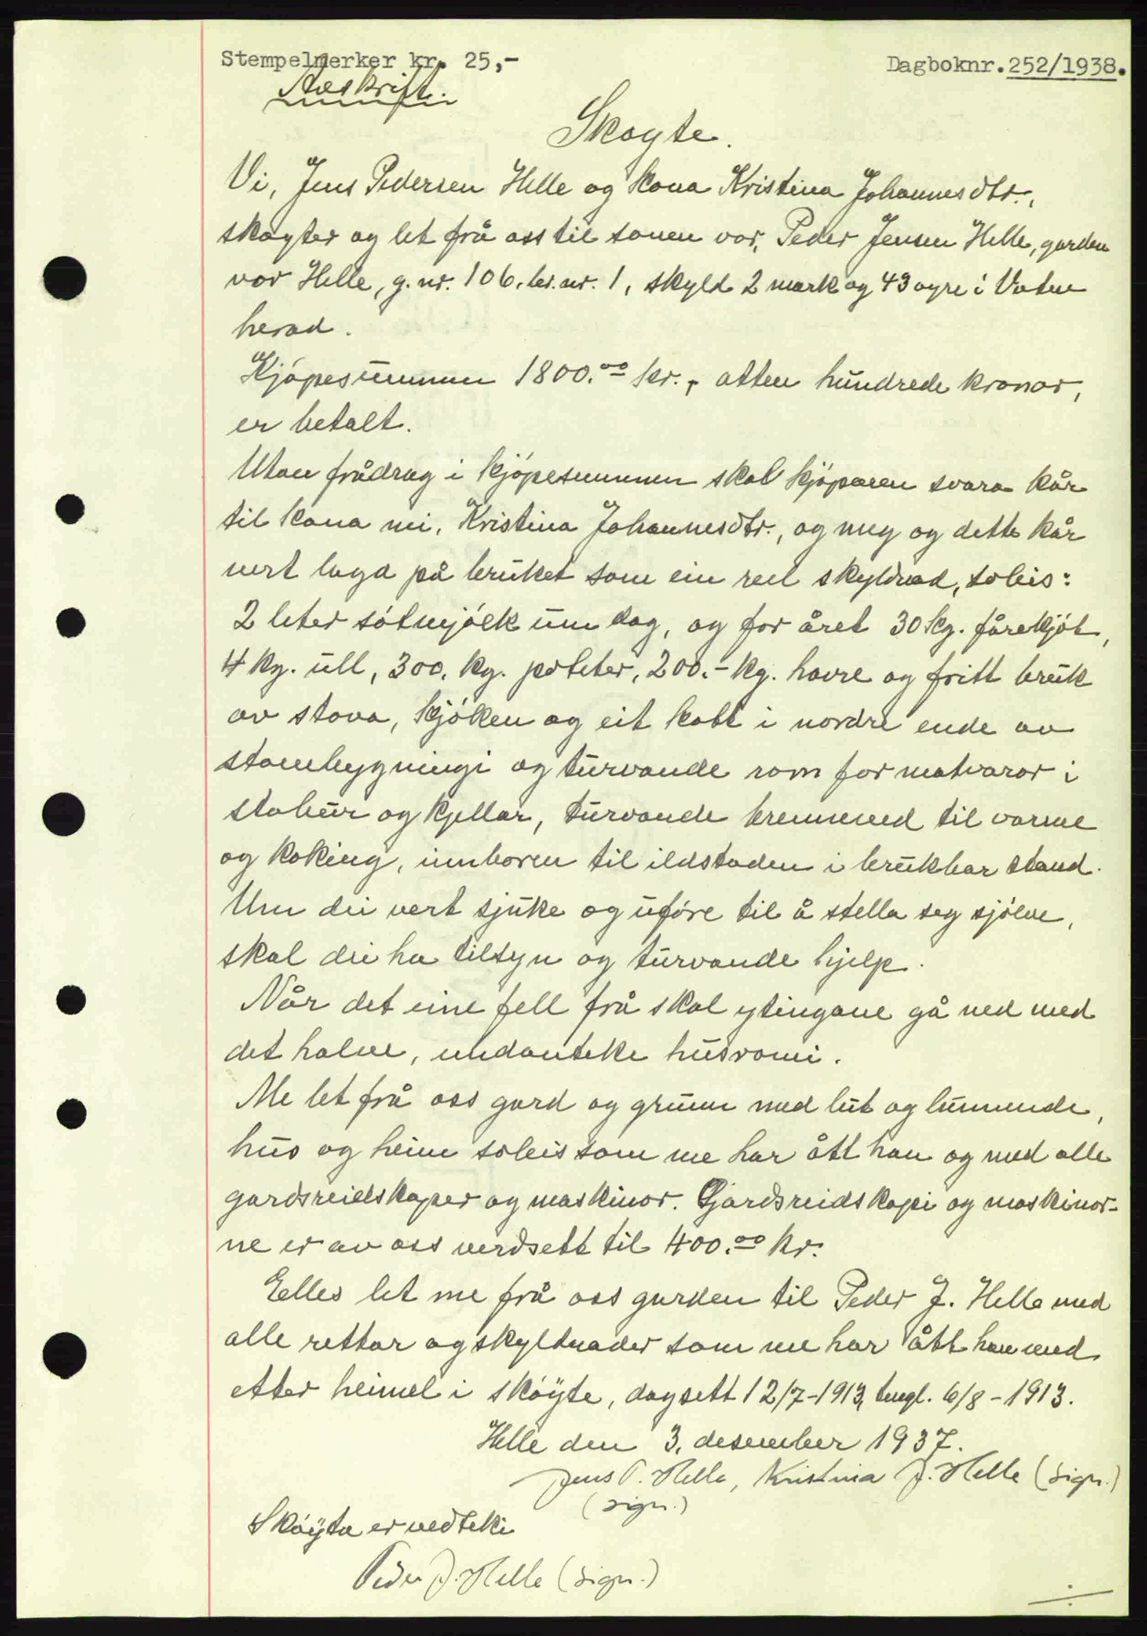 Stempelmerker kr. 25,-
Dagboknr. 252/1938.
Avskrift.
Skøyte.
Vi, Jens Pedersen Helle og kona Kristina Johannesdtr.,
skøyter og let frå oss til sonen vor, Peder Jensen Helle, garden
vor Helle, g.nr. 106, br.nr. 1, skyld 2 mark og 43 øyre i Vatne
herad.
Kjøpesummen 1800.00 kr., atten hundrede kronor,
er betalt.
Utan frådrag i kjøpesummen skal kjøparen svara kår
til kona mi, Kristina Johannesdtr., og meg og dette kår
vert lagd på bruket som ein reel skyldnad, soleis:
2 liter søtmjølk um dag, og for året 30 kg. fårekjøt,
4 kg. ull, 300. kg. poteter, 200.- kg. havre og fritt bruk
av stova, kjøken og eit kott i nordre ende av
stovebygningi og turvande rom for matvaror i
stabur og kjellar, turvande brenneved til varme
og koking, innboren til ildstaden i brukbar stand.
Um dei vert sjuke og uføre til å stella seg sjølve,
skal dei ha tilsyn og turvande hjelp.
Når det eine fell frå skal ytingane gå ned med
det halve, undanteke husromi.
Me let frå oss gard og grunn med lut og lunnende,
hus og heim soleis som me har ått han og med alle
gardsreidskaper og maskinor. Gardsreidskapi og maskinor-
ne er av oss verdsett til 400.00 kr.
Elles let me frå oss garden til Peder J. Helle med
alle rettar og skyldnader som me har ått han med
etter heimel i skøyte, dagsett 12/7-1913, tingl. 6/8-1913.
Helle den 3. desember 1937.
Jens P. Helle, Kristina J. Helle (sign.)
(sign.)
Skøyta er vedteki
Peder J. Helle (sign.)